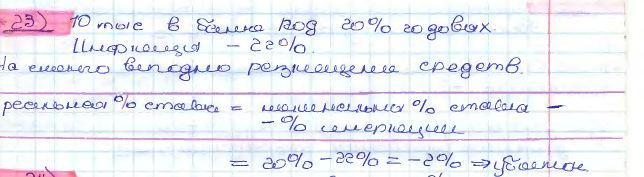 23) 10 тыс в банке под 20% годовых.
Инфляция – 22%.
На сколько выгодно размещение средств.
реальная % ставка = номинальная % ставка –
– % инфляции
= 20% – 22% = –2% ⇒ убыток